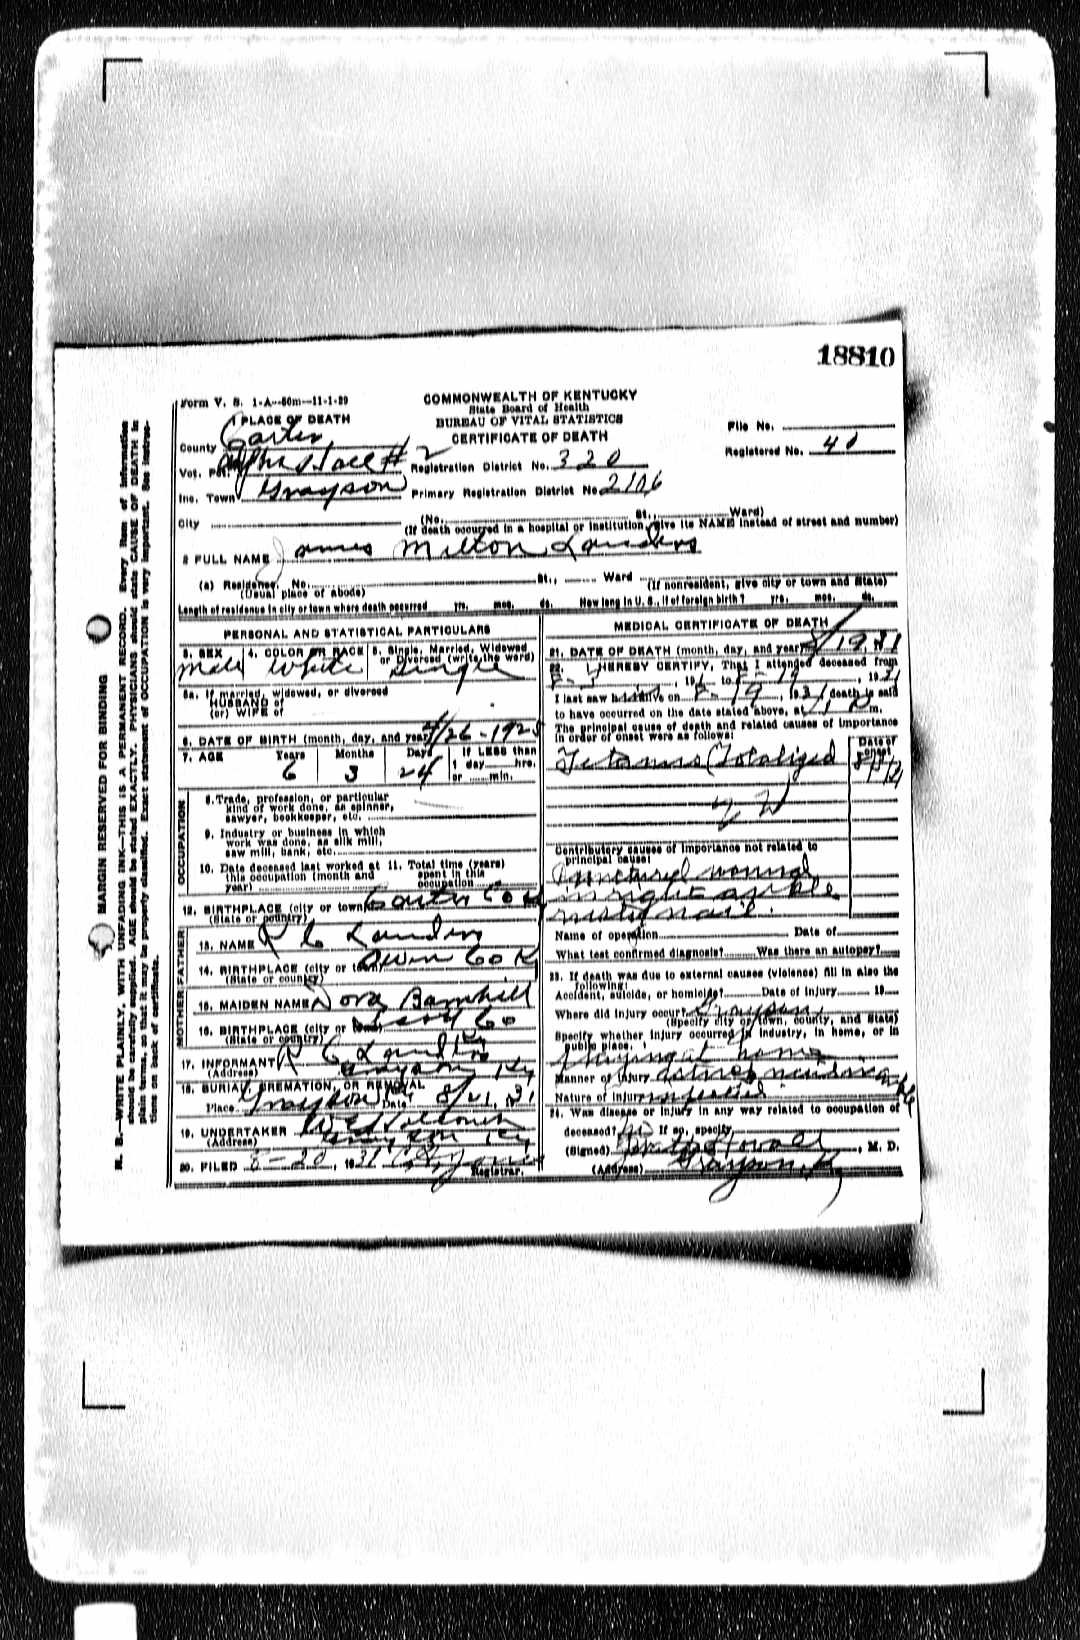 18810
Form V. S. 1-A--50m—11-1-29
COMMONWEALTH OF KENTUCKY
State Board of Health
BUREAU OF VITAL STATISTICS
CERTIFICATE OF DEATH
1 PLACE OF DEATH
County Carter
Vot. Pct. #2
Inc. Town Grayson
Registration District No. 320
Primary Registration District No 2106
File No.
Registered No. 40
City (No. St., Ward)
(If death occurred in a hospital or institution, give its NAME instead of street and number)
2 FULL NAME James Milton Landers
(a) Residence. No. St., Ward (If nonresident, give city or town and State)
(Usual place of abode)
Length of residence in city or town where death occurred yrs. mos. ds. How long in U. S., if of foreign birth? yrs. mos. ds.
PERSONAL AND STATISTICAL PARTICULARS
3. SEX 4. COLOR OR RACE 5. Single, Married, Widowed
or Divorced (write the word)
Male White Single
5a. If married, widowed, or divorced
HUSBAND of
(or) WIFE of
6. DATE OF BIRTH (month, day, and year) 4/26-1925
7. AGE Years Months Days If LESS than
1 day hrs.
or min.
6 3 24
OCCUPATION
8. Trade, profession, or particular
kind of work done, as spinner,
sawyer, bookkeeper, etc.
9. Industry or business in which
work was done, as silk mill,
saw mill, bank, etc.
10. Date deceased last worked at 11. Total time (years)
this occupation (month and spent in this
year) occupation
12. BIRTHPLACE (city or town) Carter Co
(State or country)
FATHER
13. NAME R C Landers
14. BIRTHPLACE (city or town) Owen Co K
(State or country)
MOTHER
15. MAIDEN NAME Dora Barnhill
16. BIRTHPLACE (city or town) Co
(State or country)
17. INFORMANT R C Landers
(Address) Grayson Ky
18. BURIAL, CREMATION, OR REMOVAL
Place Grayson Date 8/21, 31
19. UNDERTAKER
(Address) Grayson Ky
20. FILED 8-20, 1931 Jones
Registrar.
MEDICAL CERTIFICATE OF DEATH
21. DATE OF DEATH (month, day, and year) 8/19, 31
22. I HEREBY CERTIFY, That I attended deceased from
, 19 to 8-19, 1931
I last saw him alive on 8-19, 1931 death is said
to have occurred on the date stated above, at m.
The principal cause of death and related causes of importance
in order of onset were as follows:
Date of
onset
Tetanus
Contributory causes of importance not related to
principal cause:
Punctured wound
in right ankle
rusty nail.
Name of operation Date of
What test confirmed diagnosis? Was there an autopsy?
23. If death was due to external causes (violence) fill in also the
following:
Accident, suicide, or homicide? Date of injury 19
Where did injury occur? Grayson,
(Specify city or town, county, and State)
Specify whether injury occurred in industry, in home, or in
public place.
Playing at home
Manner of injury
Nature of injury
24. Was disease or injury in any way related to occupation of
deceased? No If so, specify
(Signed) , M. D.
(Address) Grayson, K
MARGIN RESERVED FOR BINDING
N. B.—WRITE PLAINLY, WITH UNFADING INK—THIS IS A PERMANENT RECORD. Every item of information
should be carefully supplied. AGE should be stated EXACTLY. PHYSICIANS should state CAUSE OF DEATH in
plain terms, so that it may be properly classified. Exact statement of OCCUPATION is very important. See instruc-
tions on back of certificate.